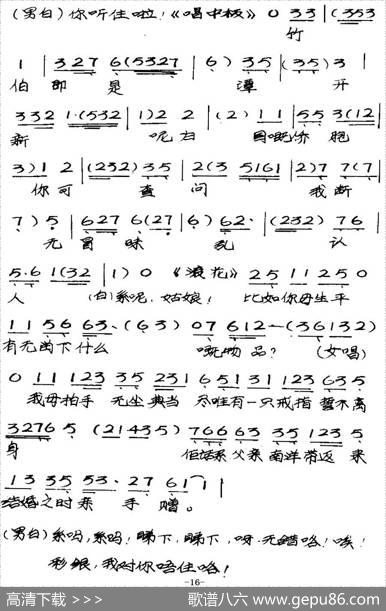 (男白)你听住啦!《唱中板》0 33 | (353
竹
1 | 327 6(5327 | 6) 35 | (35) 3 |
伯 即 是 潭 开
332 1·(532 | 1) 2 2 | (2) 11 | 55 3(12 |
新 呢 因 胞
3) 1 2 | (232) 35 | 2(3 5161 | 2) 7 7(7 |
你 可 查 问 我 断
7) 5 | 627 6(27 | 6) 62· | (232) 76 |
无 冒 昧 乱 认
5·6 1(32 | 1) 0 《浪花》 25 11 25 0
人 (白)系呢,姑娘! 比如你母生平
11 56 63·(63) 07 612—(36132)
有无留下什么 嘅物 品? (女唱)
0 11 123 35 231 6 51 31 123 635
我母拍手 无业典当 尽唯有一只戒指 誓不离
3276 5 (21435) 766 63 35 123 5
身 佢话系父亲南洋带返 来
13 35 53· 27 61 1 |
结婚之时亲 手 赠。
(男白)系吗,系吗!睇下,睇下,呀·无错咯!唉!
彩银,我对你唔住咯!
-16-
高清下载 >>> 歌谱八六 www.gepu86.com